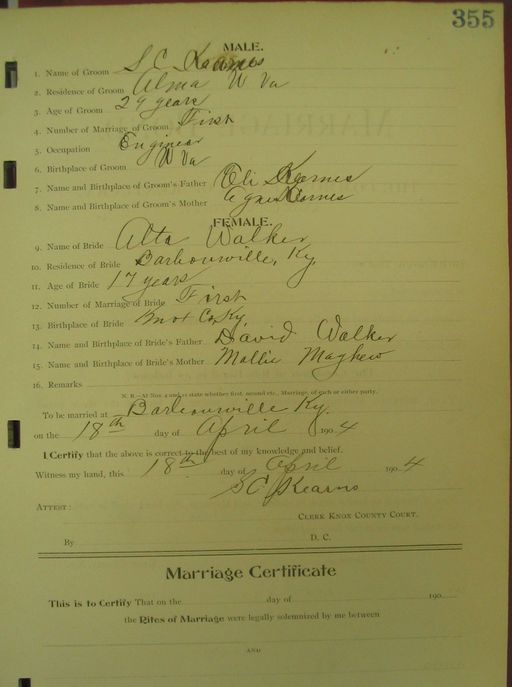 355
MALE.
1. Name of Groom S C Kearns
2. Residence of Groom Alma W Va
3. Age of Groom 29 years
4. Number of Marriage of Groom First
5. Occupation Engineer
6. Birthplace of Groom W Va
7. Name and Birthplace of Groom's Father Eli Kearns
8. Name and Birthplace of Groom's Mother Agnes Kearns
FEMALE.
9. Name of Bride Alta Walker
10. Residence of Bride Barbourville, Ky,
11. Age of Bride 17 years
12. Number of Marriage of Bride First
13. Birthplace of Bride Knox Co, Ky,
14. Name and Birthplace of Bride's Father David Walker
15. Name and Birthplace of Bride's Mother Mollie Mayhew
16. Remarks
N. B.—At Nos. 4 and 12 state whether first, second etc., Marriage, of each or either party.
To be married at Barbourville Ky.
on the 18th day of April 1904
I Certify that the above is correct to the best of my knowledge and belief.
Witness my hand, this 18th day of April 1904
S C Kearns
ATTEST:
CLERK KNOX COUNTY COURT.
By D. C.
Marriage Certificate
This is to Certify That on the day of 190
the Rites of Marriage were legally solemnized by me between
AND